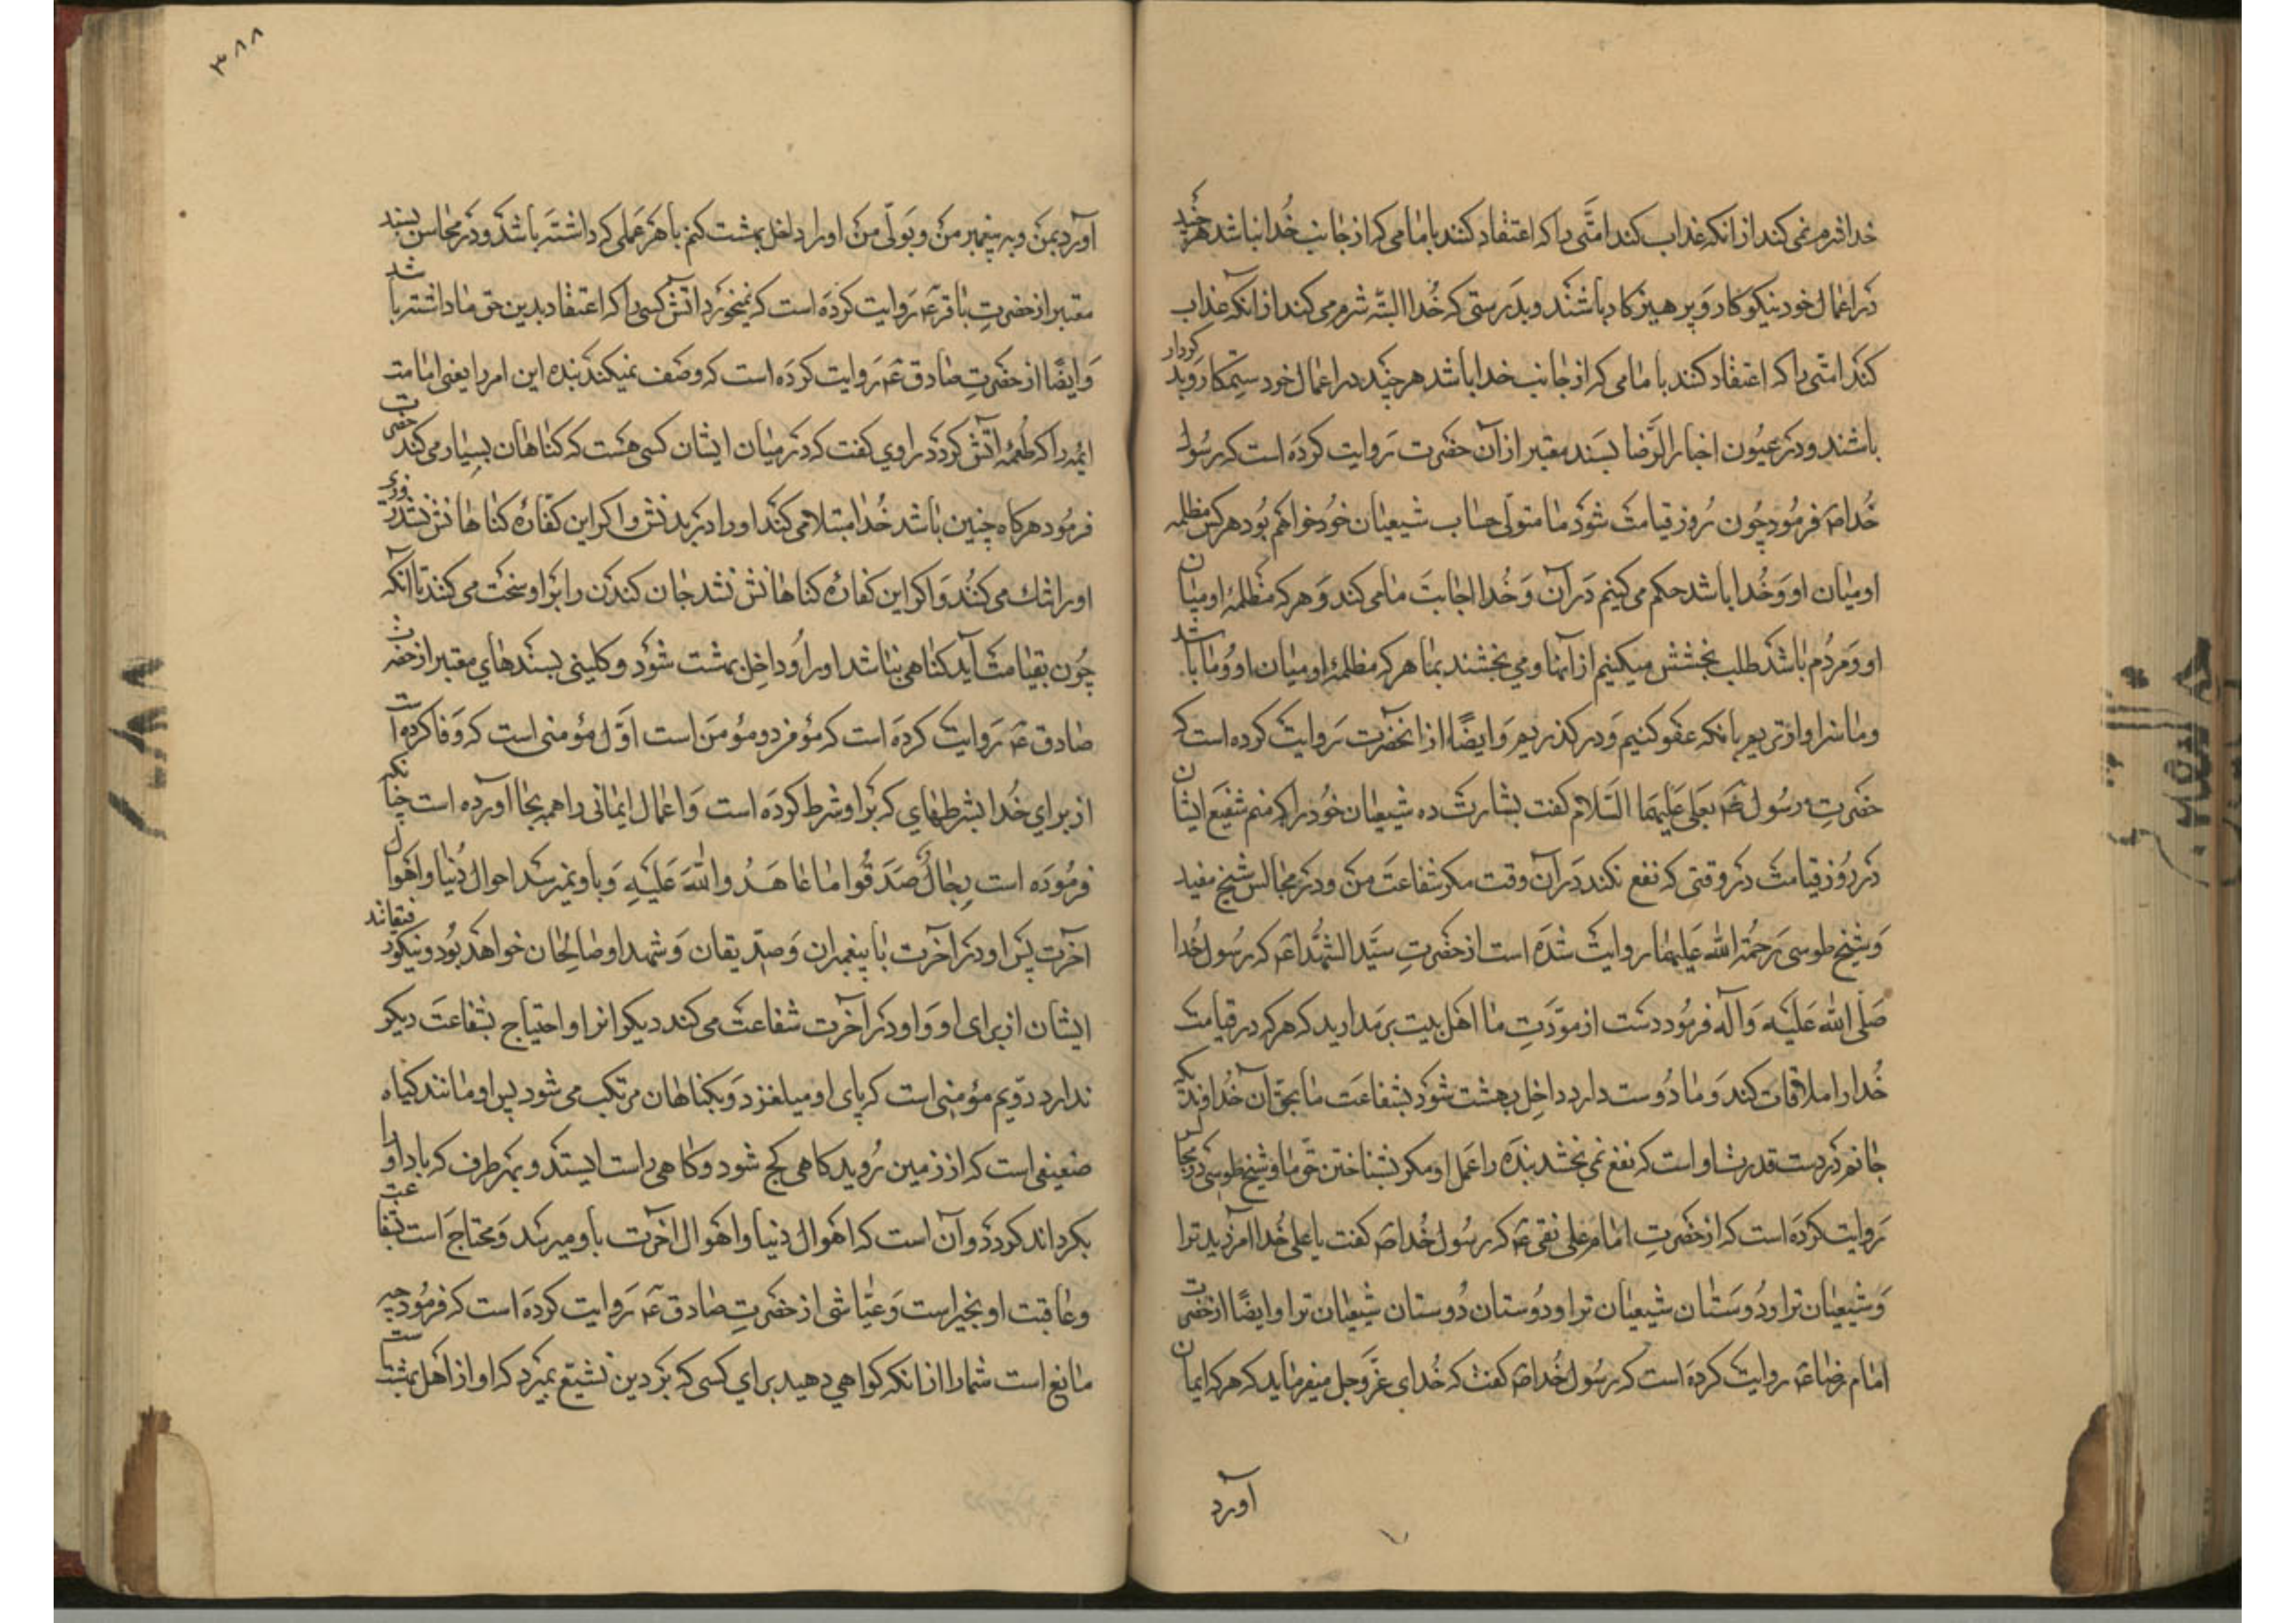 خدا شرم نمی کند از انکه عذاب کند امتی را که اعتقاد کنند بامامی که از جانب خدا نباشد هر چند
در اعمال خود نیکو کار و پرهیزکار باشند و بدرستی که خدا البته شرم می کند از انکه عذاب
کند امتی را که اعتقاد کنند بامامی که از جانب خدا باشد هر چند در اعمال خود ستمکار و بد کردار
باشند و در عیون اخبار الرضا بسند معتبر از آن حضرت روایت کرده است که رسول
خدا ص فرمود چون روز قیامت شود ما متولی حساب شیعیان خود خواهم بود هر کس مظلمه
او میان او و خدا باشد حکم می کنیم در آن و خدا اجابت ما می کند و هر که مظلمهٔ او میان
او و مردم باشد طلب بخشش میکنیم از آنها و می بخشند بما هر که مظلمهٔ او میان او و ما باشد
و ما سزاوارتریم بانکه عفو کنیم و در گذریم و ایضًا از انحضرت روایت کرده است که
حضرتِ رسول ص بعلی علیهما السلام گفت بشارت ده شیعیان خود را که منم شفیع ایشان
در روز قیامت در وقتی که نفع نکند در آن وقت مکر شفاعت من و در مجالس شیخ مفید
و شیخ طوسی رحمة الله علیهما روایت شده است از حضرتِ سید الشهدا ع که رسول خدا
صلی الله علیه و آله فرمود دست از مودّتِ ما اهل بیت بر مدارید که هر که در قیامت
خدا را ملاقات کند و ما دوست دارد داخل بهشت شود بشفاعت ما بحق آن خداوندیکه
جانم در دست قدرت او است که نفع نمی بخشد بنده را عمل او مکر بشناختن حق ما و شیخ طوسی در مجالس
روایت کرده است که از حضرتِ امام علی نقی ع که رسول خدا ص کفت یا علی خدا آمرزید ترا
و شیعیان ترا و دوستان شیعیان ترا و دوستان دوستان شیعیان ترا و ایضًا از حضرت
امام رضا ع روایت کرده است که رسول خدا ص کفت که خدای عزّ و جل میفرماید که هر که ایمان
آورد
۳۸۸
آورد بمن و به پیغمبر من و بولّی من او را داخل بهشت کنم با هر عملی که داشته باشد و در محاسن بسند
معتبر از حضرتِ باقر ع روایت کرده است که نمیخورد آتش کسی را که اعتقاد بدین حق ما داشته باشد
و ایضًا از حضرتِ صادق ع روایت کرده است که وصف نمیکند بنده این امر را یعنی امامت
ائمه را که طعمهٔ آتش کردد راوی کفت که در میان ایشان کسی هست که کناهان بسیار می کند حضرت
فرمود هر کاه چنین باشد خدا مبتلا می کند او را در بدنش و اکر این کفارهٔ کناهانش نشد روزی
او را تنک می کند و اکر این کفارهٔ کناهانش نشد جان کندن را بر او سخت می کند تا آنکه
چون بقیامت آید کناهی نباشد او را و داخل بهشت شود و کلینی بسندهای معتبر از حضرت
صادق ع روایت کرده است که مؤمن دو مؤمن است اوّل مؤمنی است که وفا کرده است
از برای خدا بشرطهای که بر او شرط کرده است و اعمال ایمانی را همه بجا آورده است چنانکه
فرموده است رجالٌ صدقوا ما عاهدوا الله علیه و باو نمیرسد احوال دنیا و اهوال
آخرت پس او در آخرت با پیغمبران و صدّیقان و شهدا و صالحان خواهد بود و نیکو رفیقانند
ایشان از برای او و او در آخرت شفاعت می کند دیکرانرا و احتیاج بشفاعت دیکر
ندارد دوّیم مؤمنی است که پای او میلغزد و بکناهان مرتکب می شود پس او مانند کیاه
ضعیفی است که از زمین روید کاهی کج شود و کاهی راست ایستد و بهر طرف که باد او را
بکرداند کردد و آن است که اهوال دنیا و اهوال آخرت باو میرسد و محتاج است بشفاعت
و عاقبت او بخیر است و عیّاشی از حضرتِ صادق ع روایت کرده است که فرمود چه
مانع است شما را از انکه کواهی دهید برای کسی که بر دین تشیّع بمیرد که او از اهل بهشت است